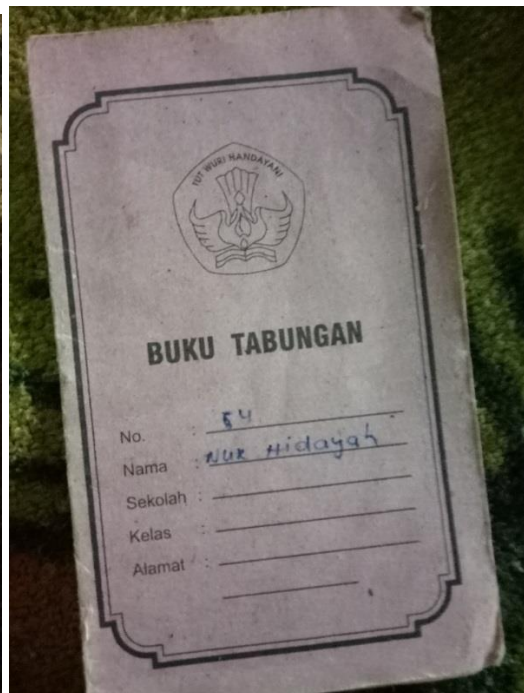 TUT WURI HANDAYANI
BUKU TABUNGAN
No. : 54
Nama : Nur Hidayah
Sekolah :
Kelas :
Alamat :